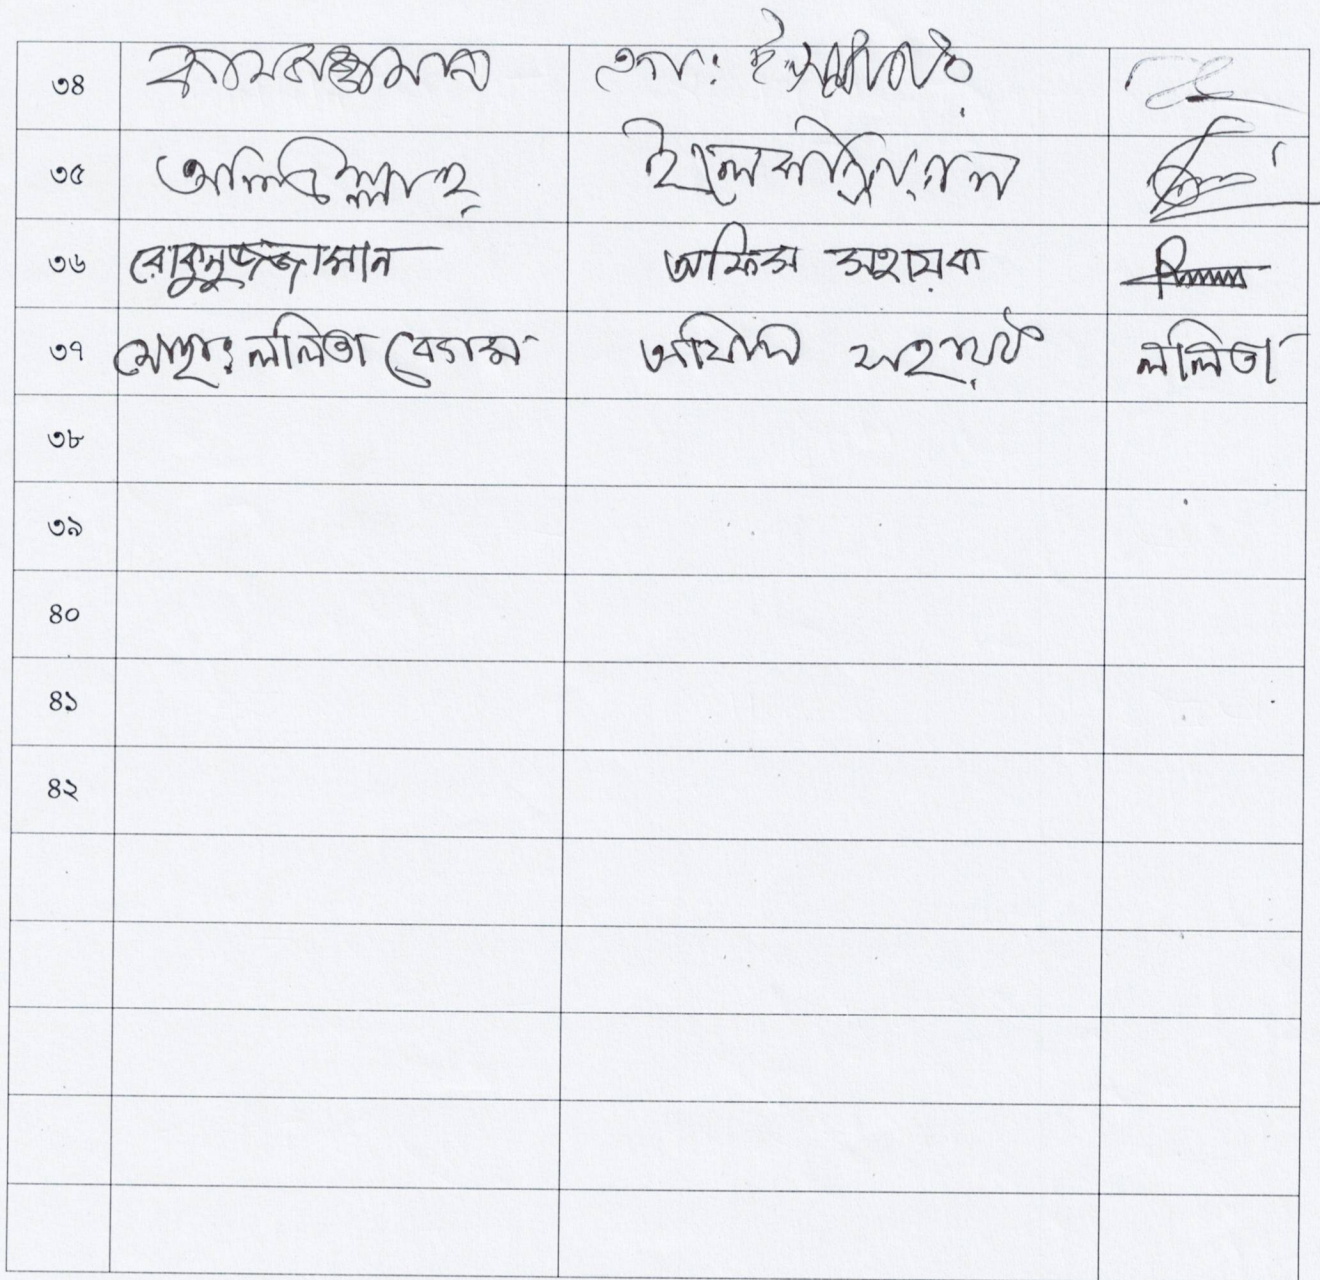 ৩৪ কামরুজ্জামান
৩৫ অলিউল্লাহ্ ইলেকট্রিশিয়ান
৩৬ রোকুনুজ্জামান অফিস সহায়ক
৩৭ মোছাঃ ললিতা বেগম অফিস সহায়ক ললিতা
৩৮
৩৯
৪০
৪১
৪২